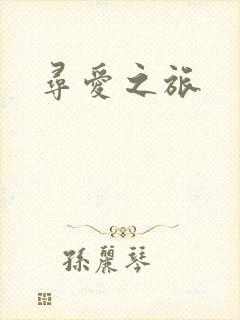 尋愛之旅
孫麗琴